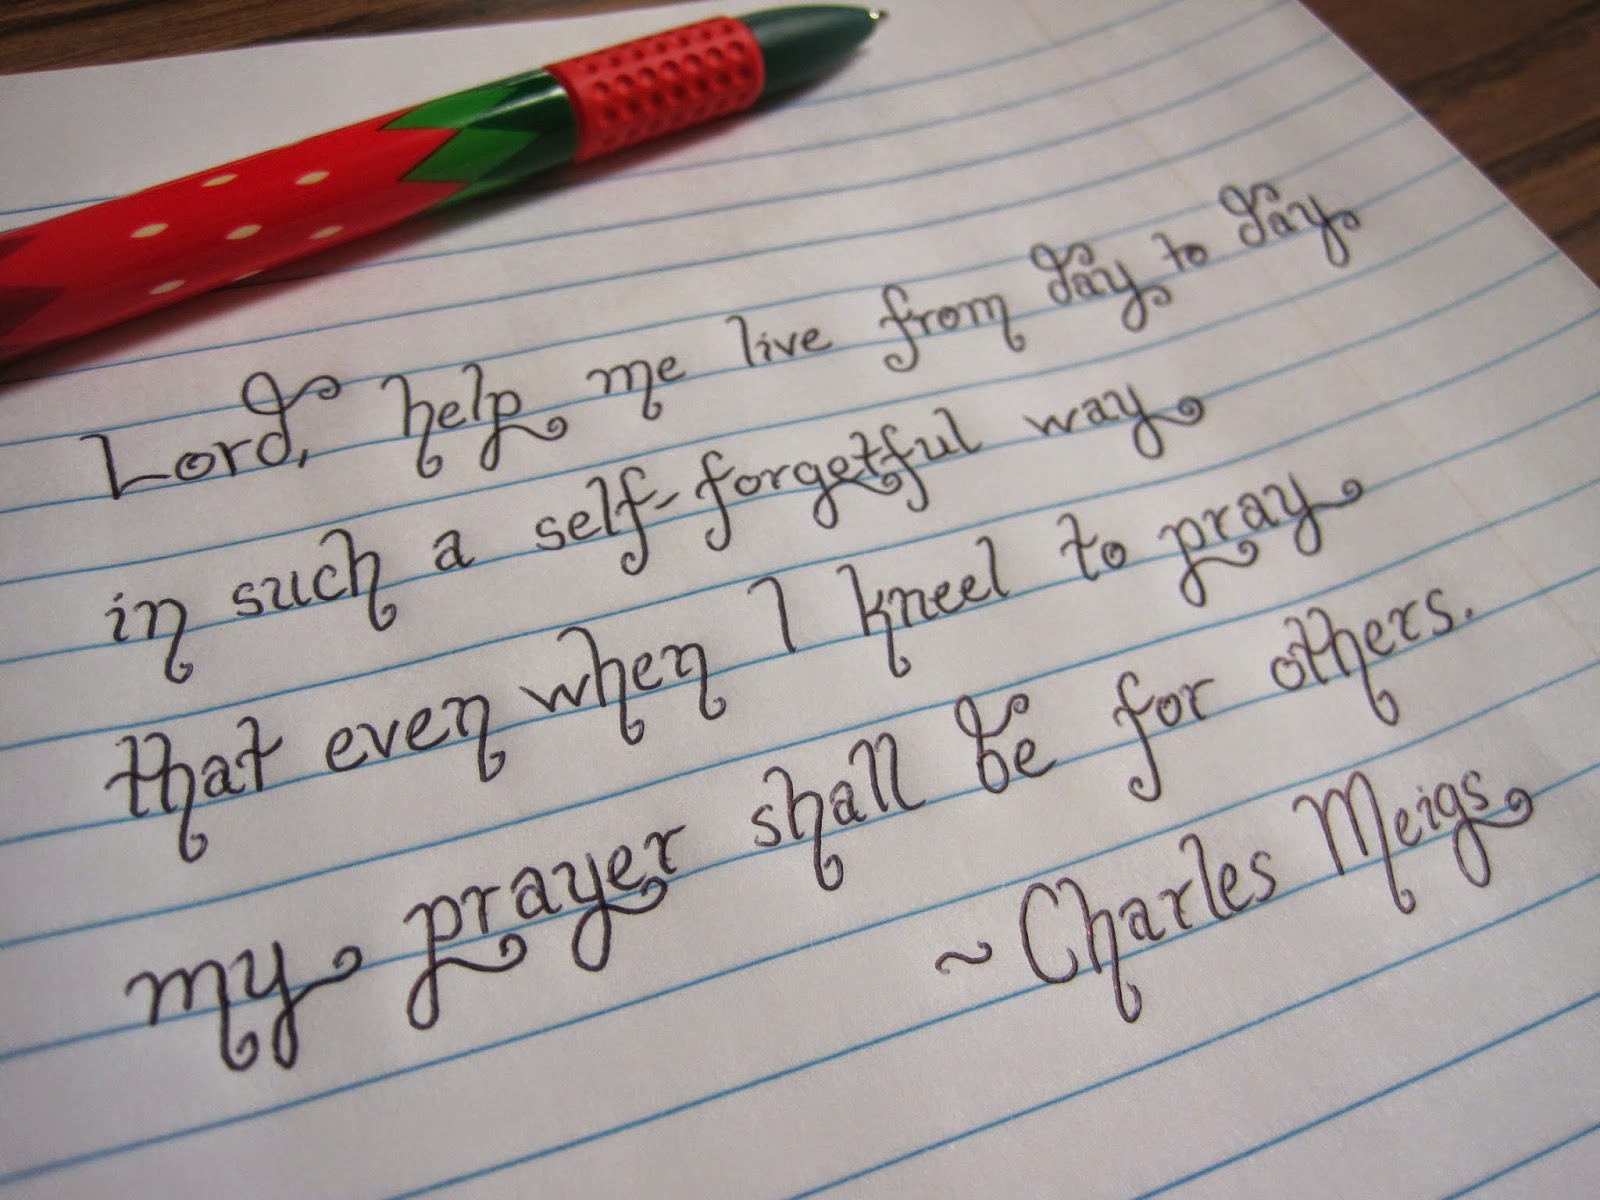 Lord, help me live from day to day
in such a self-forgetful way
that even when I kneel to pray
my prayer shall be for others.
~ Charles Meigs